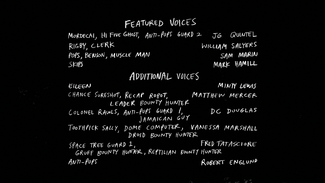 FEATURED VOICES
MORDECAI, HI FIVE GHOST, ANTI-POPS GUARD 2 JG QUINTEL
RIGBY, CLERK WILLIAM SALYERS
POPS, BENSON, MUSCLE MAN SAM MARIN
SKIPS MARK HAMILL
ADDITIONAL VOICES
EILEEN MINTY LEWIS
CHANCE SURESHOT, RECAP ROBOT, MATTHEW MERCER
LEADER BOUNTY HUNTER
COLONEL RAWLS, ANTI-POPS GUARD 1, DC DOUGLAS
JAMAICAN GUY
TOOTHPICK SALLY, DOME COMPUTER, VANESSA MARSHALL
DROID BOUNTY HUNTER
SPACE TREE GUARD 2, FRED TATASCIORE
GRUFF BOUNTY HUNTER, REPTILIAN BOUNTY HUNTER
ANTI-POPS ROBERT ENGLUND